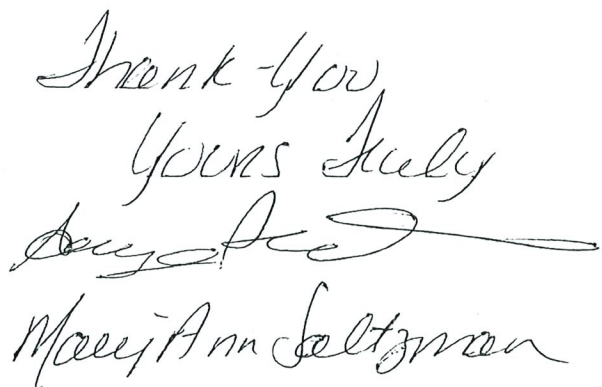 Thank-You
Yours Truly
Mary Ann Saltzman